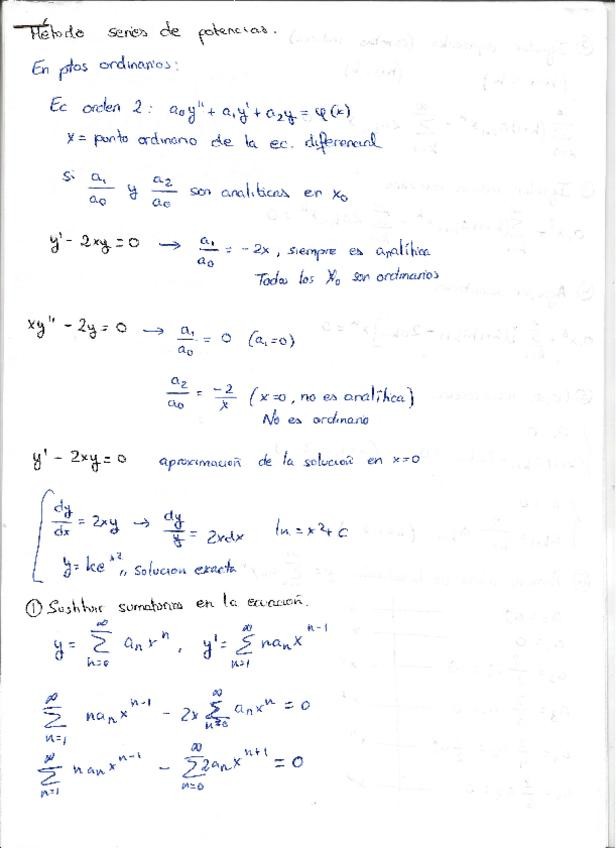 Método series de potencias.
En ptos ordinarios:
Ec orden 2: a₀y'' + a₁y' + a₂y = φ(x)
x = punto ordinario de la ec. diferencial
Si a₁/a₀ y a₂/a₀ son analíticas en x₀
y' - 2xy = 0 → a₁/a₀ = -2x, siempre es analítica
Todos los x₀ son ordinarios
xy'' - 2y = 0 → a₁/a₀ = 0 (a₁=0)
a₂/a₀ = -2/x (x=0, no es analítica)
No es ordinario
y' - 2xy = 0 aproximación de la solución en x=0
dy/dx = 2xy → dy/y = 2xdx ln = x² + C
y = ke^x² ,, solución exacta
① Sustituir sumatorios en la ecuación.
y = ∑_{n=0}^{∞} aₙxⁿ, y' = ∑_{n=1}^{∞} naₙx^{n-1}
∑_{n=1}^{∞} naₙx^{n-1} - 2x ∑_{n=0}^{∞} aₙxⁿ = 0
∑_{n=1}^{∞} naₙx^{n-1} - ∑_{n=0}^{∞} 2aₙx^{n+1} = 0